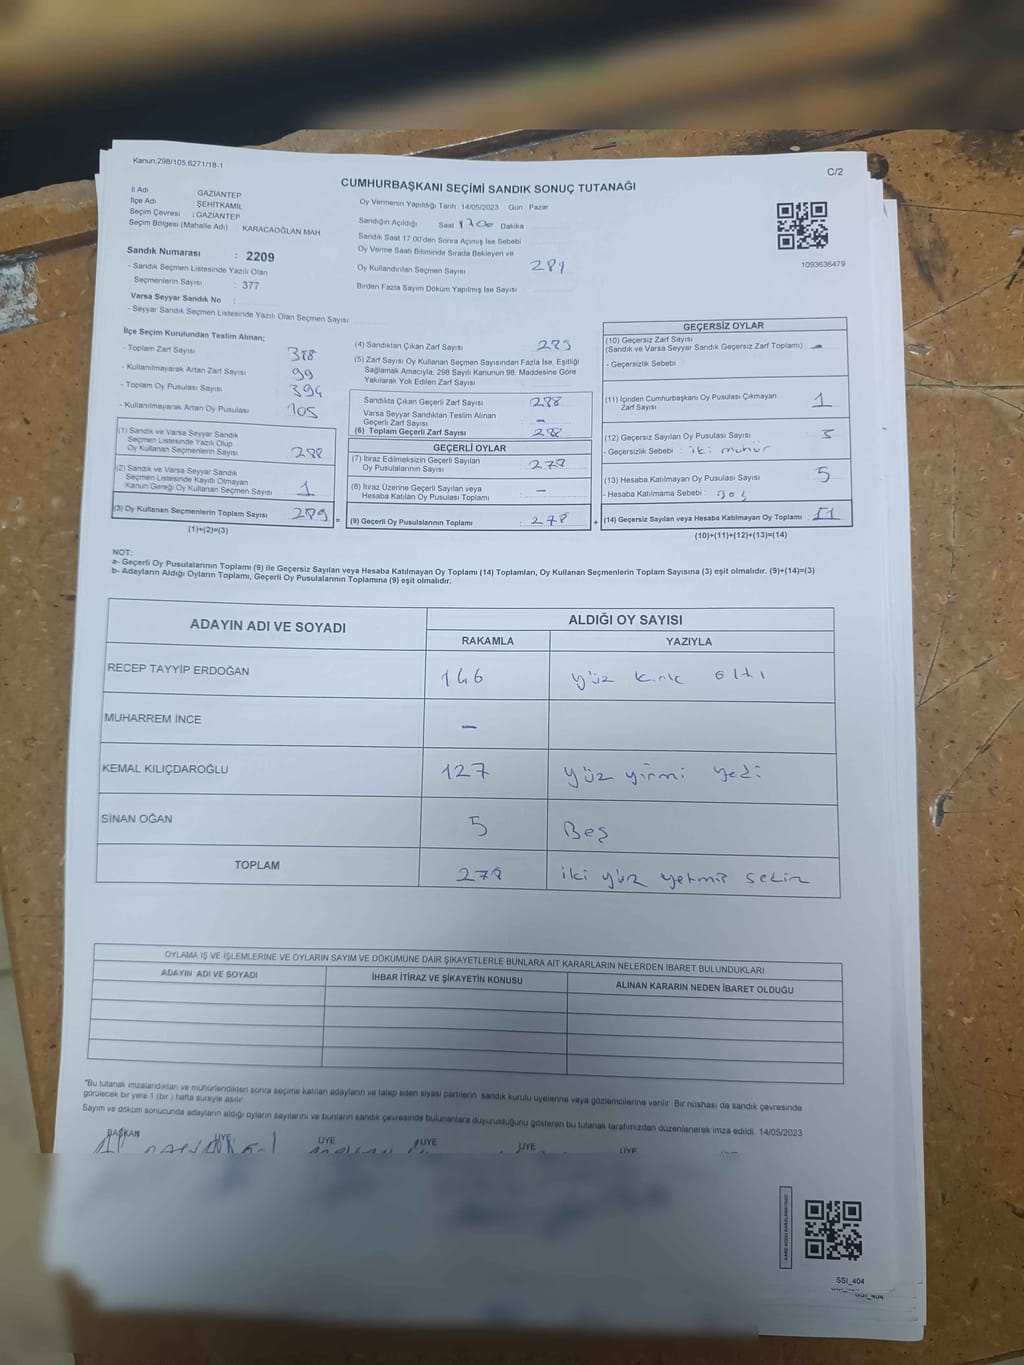 Kanun,298/105,6271/18-1
C/2
CUMHURBAŞKANI SEÇİMİ SANDIK SONUÇ TUTANAĞI
İl Adı GAZİANTEP
İlçe Adı ŞEHİTKAMİL
Seçim Çevresi : GAZİANTEP
Seçim Bölgesi (Mahalle Adı) KARACAOĞLAN MAH
Sandık Numarası : 2209
- Sandık Seçmen Listesinde Yazılı Olan
Seçmenlerin Sayısı : 377
Varsa Seyyar Sandık No :
- Seyyar Sandık Seçmen Listesinde Yazılı Olan Seçmen Sayısı
Oy Vermenin Yapıldığı Tarih : 14/05/2023 Gün : Pazar
Sandığın Açıldığı Saat 1700 Dakika
Sandık Saat 17.00'den Sonra Açımış İse Sebebi
Oy Verme Saati Bitiminde Sırada Bekleyen ve
Oy Kullandırılan Seçmen Sayısı
Birden Fazla Sayım Döküm Yapılmış İse Sayısı
1093636479
İlçe Seçim Kurulundan Teslim Alınan;
- Toplam Zarf Sayısı 388
- Kullanılmayarak Artan Zarf Sayısı 99
- Toplam Oy Pusulası Sayısı 394
- Kullanılmayarak Artan Oy Pusulası 105
(1) Sandık ve Varsa Seyyar Sandık
Seçmen Listesinde Yazılı Olup
Oy Kullanan Seçmenlerin Sayısı 288
(2) Sandık ve Varsa Seyyar Sandık
Seçmen Listesinde Kayıtlı Olmayan
Kanun Gereği Oy Kullanan Seçmen Sayısı 1
(3) Oy Kullanan Seçmenlerin Toplam Sayısı 289 =
(1)+(2)=(3)
(4) Sandıktan Çıkan Zarf Sayısı : 289
(5) Zarf Sayısı Oy Kullanan Seçmen Sayısından Fazla İse, Eşitliği
Sağlamak Amacıyla; 298 Sayılı Kanunun 98. Maddesine Göre
Yakılarak Yok Edilen Zarf Sayısı
Sandıkta Çıkan Geçerli Zarf Sayısı : 288
Varsa Seyyar Sandıktan Teslim Alınan
Geçerli Zarf Sayısı : -
(6) Toplam Geçerli Zarf Sayısı : 288
GEÇERLİ OYLAR
(7) İtiraz Edilmeksizin Geçerli Sayılan
Oy Pusulalarının Sayısı : 278
(8) İtiraz Üzerine Geçerli Sayılan veya
Hesaba Katılan Oy Pusulası Toplamı : -
(9) Geçerli Oy Pusulalarının Toplamı : 278 +
GEÇERSİZ OYLAR
(10) Geçersiz Zarf Sayısı
(Sandık ve Varsa Seyyar Sandık Geçersiz Zarf Toplamı) : -
- Geçersizlik Sebebi :
(11) İçinden Cumhurbaşkanı Oy Pusulası Çıkmayan
Zarf Sayısı : 1
(12) Geçersiz Sayılan Oy Pusulası Sayısı : 5
- Geçersizlik Sebebi : iki mühür
(13) Hesaba Katılmayan Oy Pusulası Sayısı : 5
- Hesaba Katılmama Sebebi : Boş
(14) Geçersiz Sayılan veya Hesaba Katılmayan Oy Toplamı : 11
(10)+(11)+(12)+(13)=(14)
NOT:
a- Geçerli Oy Pusulalarının Toplamı (9) ile Geçersiz Sayılan veya Hesaba Katılmayan Oy Toplamı (14) Toplamları, Oy Kullanan Seçmenlerin Toplam Sayısına (3) eşit olmalıdır. (9)+(14)=(3)
b- Adayların Aldığı Oyların Toplamı, Geçerli Oy Pusulalarının Toplamına (9) eşit olmalıdır.
ADAYIN ADI VE SOYADI
ALDIĞI OY SAYISI
RAKAMLA YAZIYLA
RECEP TAYYİP ERDOĞAN 146 yüz kırk altı
MUHARREM İNCE -
KEMAL KILIÇDAROĞLU 127 yüz yirmi yedi
SİNAN OĞAN 5 Beş
TOPLAM 278 iki yüz yetmiş sekiz
OYLAMA İŞ VE İŞLEMLERİNE VE OYLARIN SAYIM VE DÖKÜMÜNE DAİR ŞİKAYETLERLE BUNLARA AİT KARARLARIN NELERDEN İBARET BULUNDUKLARI
ADAYIN ADI VE SOYADI İHBAR İTİRAZ VE ŞİKAYETİN KONUSU ALINAN KARARIN NEDEN İBARET OLDUĞU
*Bu tutanak imzalandıktan ve mühürlendikten sonra seçime katılan adayların ve talep eden siyasi partilerin sandık kurulu üyelerine veya gözlemcilerine verilir. Bir nüshası da sandık çevresinde
görülecek bir yere 1 (bir ) hafta süreyle asılır.
Sayım ve döküm sonucunda adayların aldığı oyların sayılarını ve bunların sandık çevresinde bulunanlara duyurulduğunu gösteren bu tutanak tarafımızdan düzenlenerek imza edildi. 14/05/2023
BAŞKAN ÜYE ÜYE ÜYE ÜYE ÜYE
SSI_404